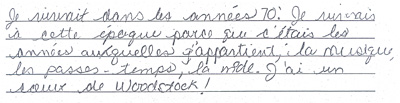 Je vivrait dans les années 70! Je vivrais
à cette époque parce que c'étais les
années auxquelles j'appartient; la musique,
les passes-temps, la mode. J'ai un
sœur de Woodstock!